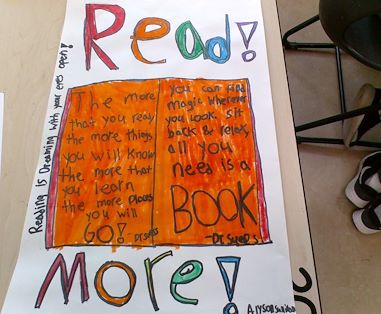 Read!
Reading is Dreaming with your eyes open!
The more
that you read
the more things
you will know
the more that
you learn
the more places
you will
GO! - Dr. Seuss
you can find
magic wherever
you look. Sit
back & relax,
all you
need is a
BOOK
- Dr. Suess
More!